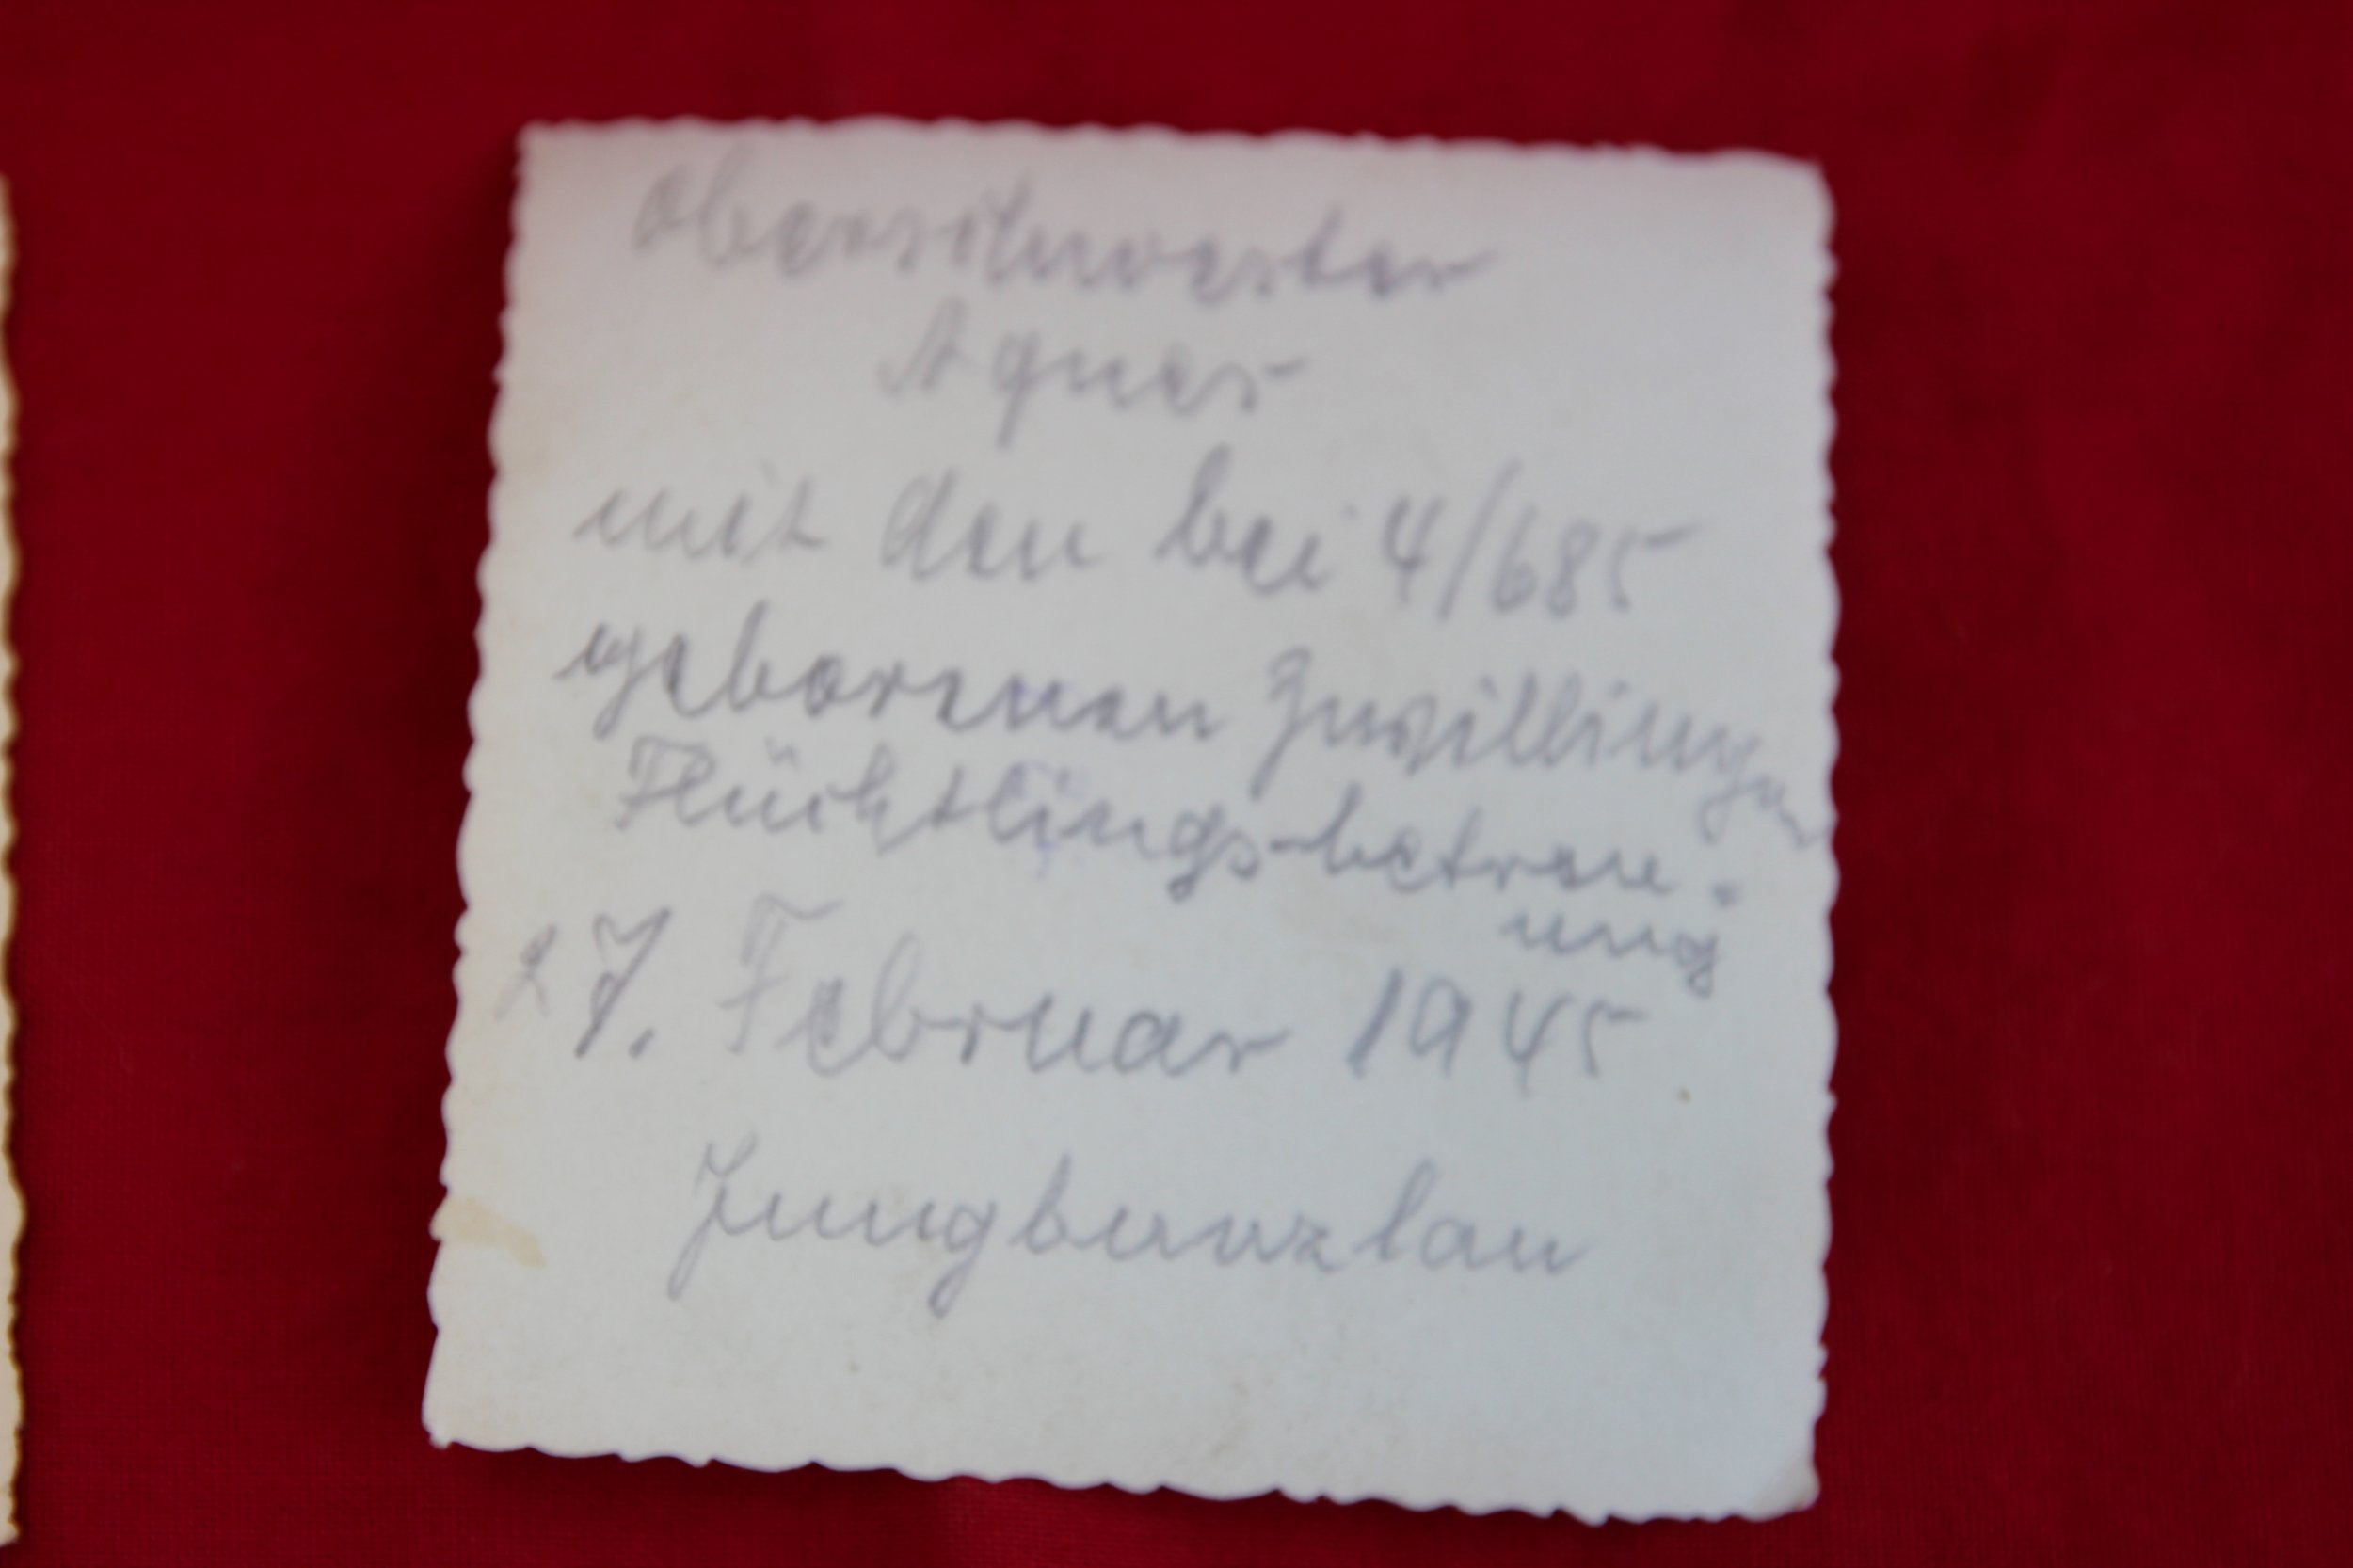 Oberschwester
Agnes
mit den bei 4/685
geborenen Zwillingen
Flüchtlingsbetreu-
ung
27. Februar 1945
Jungbunzlau